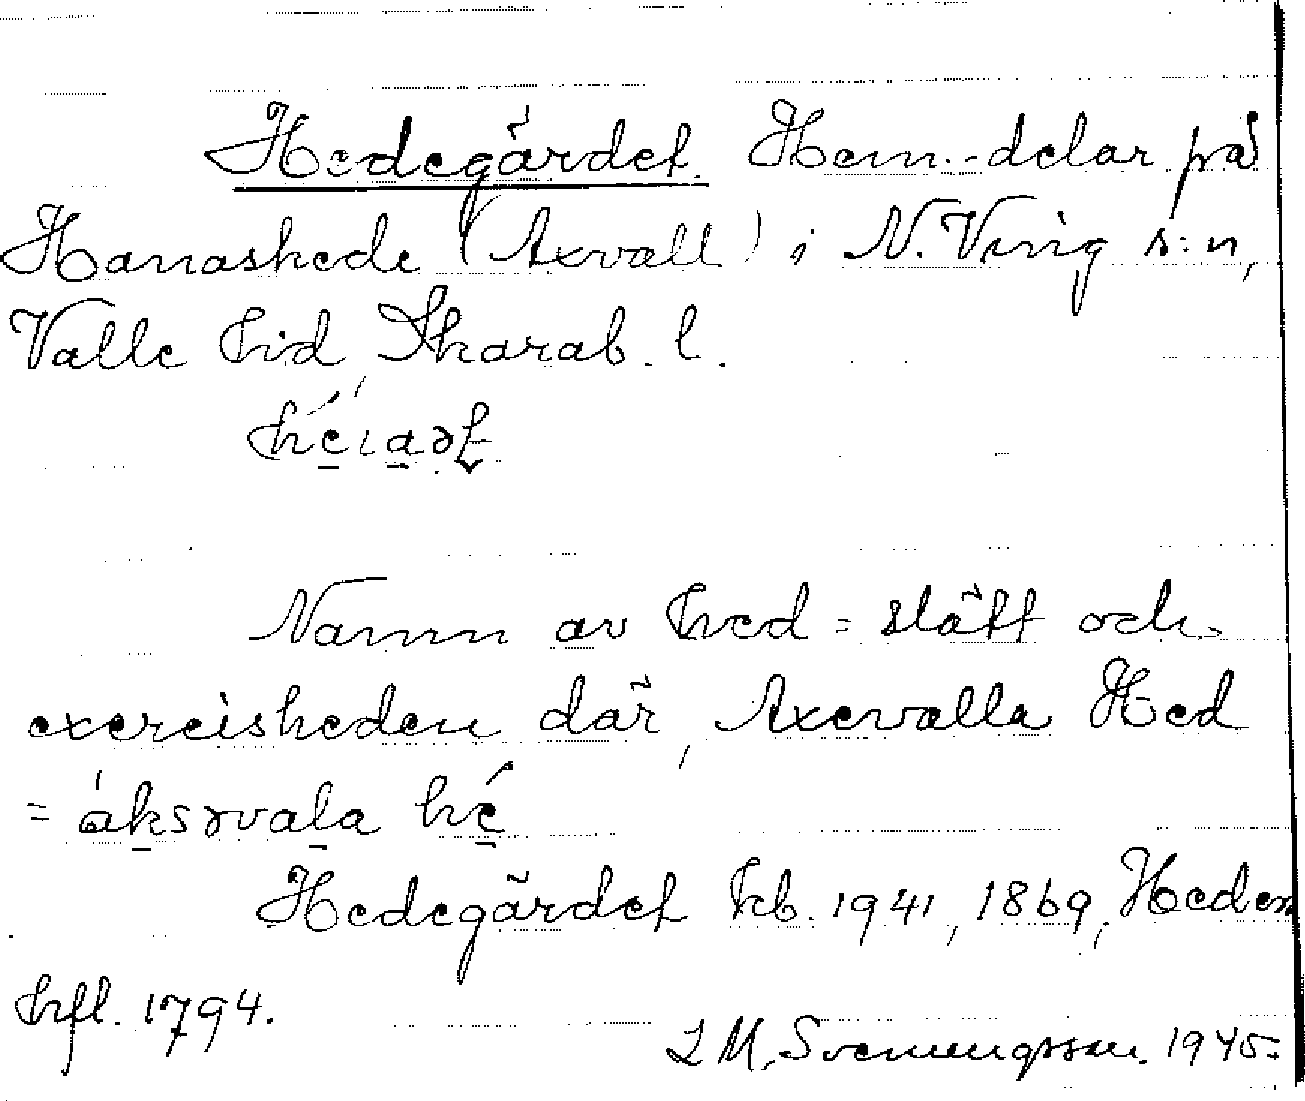 Hedegärdet. Hem.-delar på
Hanashede (Axvall) i N. Ving s:n,
Valle hd, Skarab. l.

Namn av hed = slätt och
exercisheden där, Axevalla Hed
= áksəvala hé
Hedegärdet kb. 1941, 1869, Heden
hfl. 1794.
L M. Svenungsson. 1945.